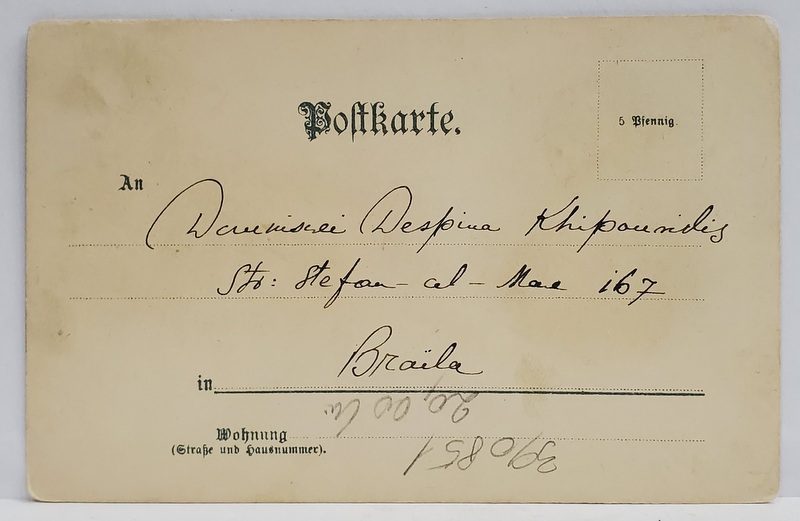 Postkarte.
5 Pfennig.
An
Despina Khipouridis
Str: Stefan-cel-Mare 167
in Braïla
20,00 lei
Wohnung
390851
(Straße und Hausnummer).